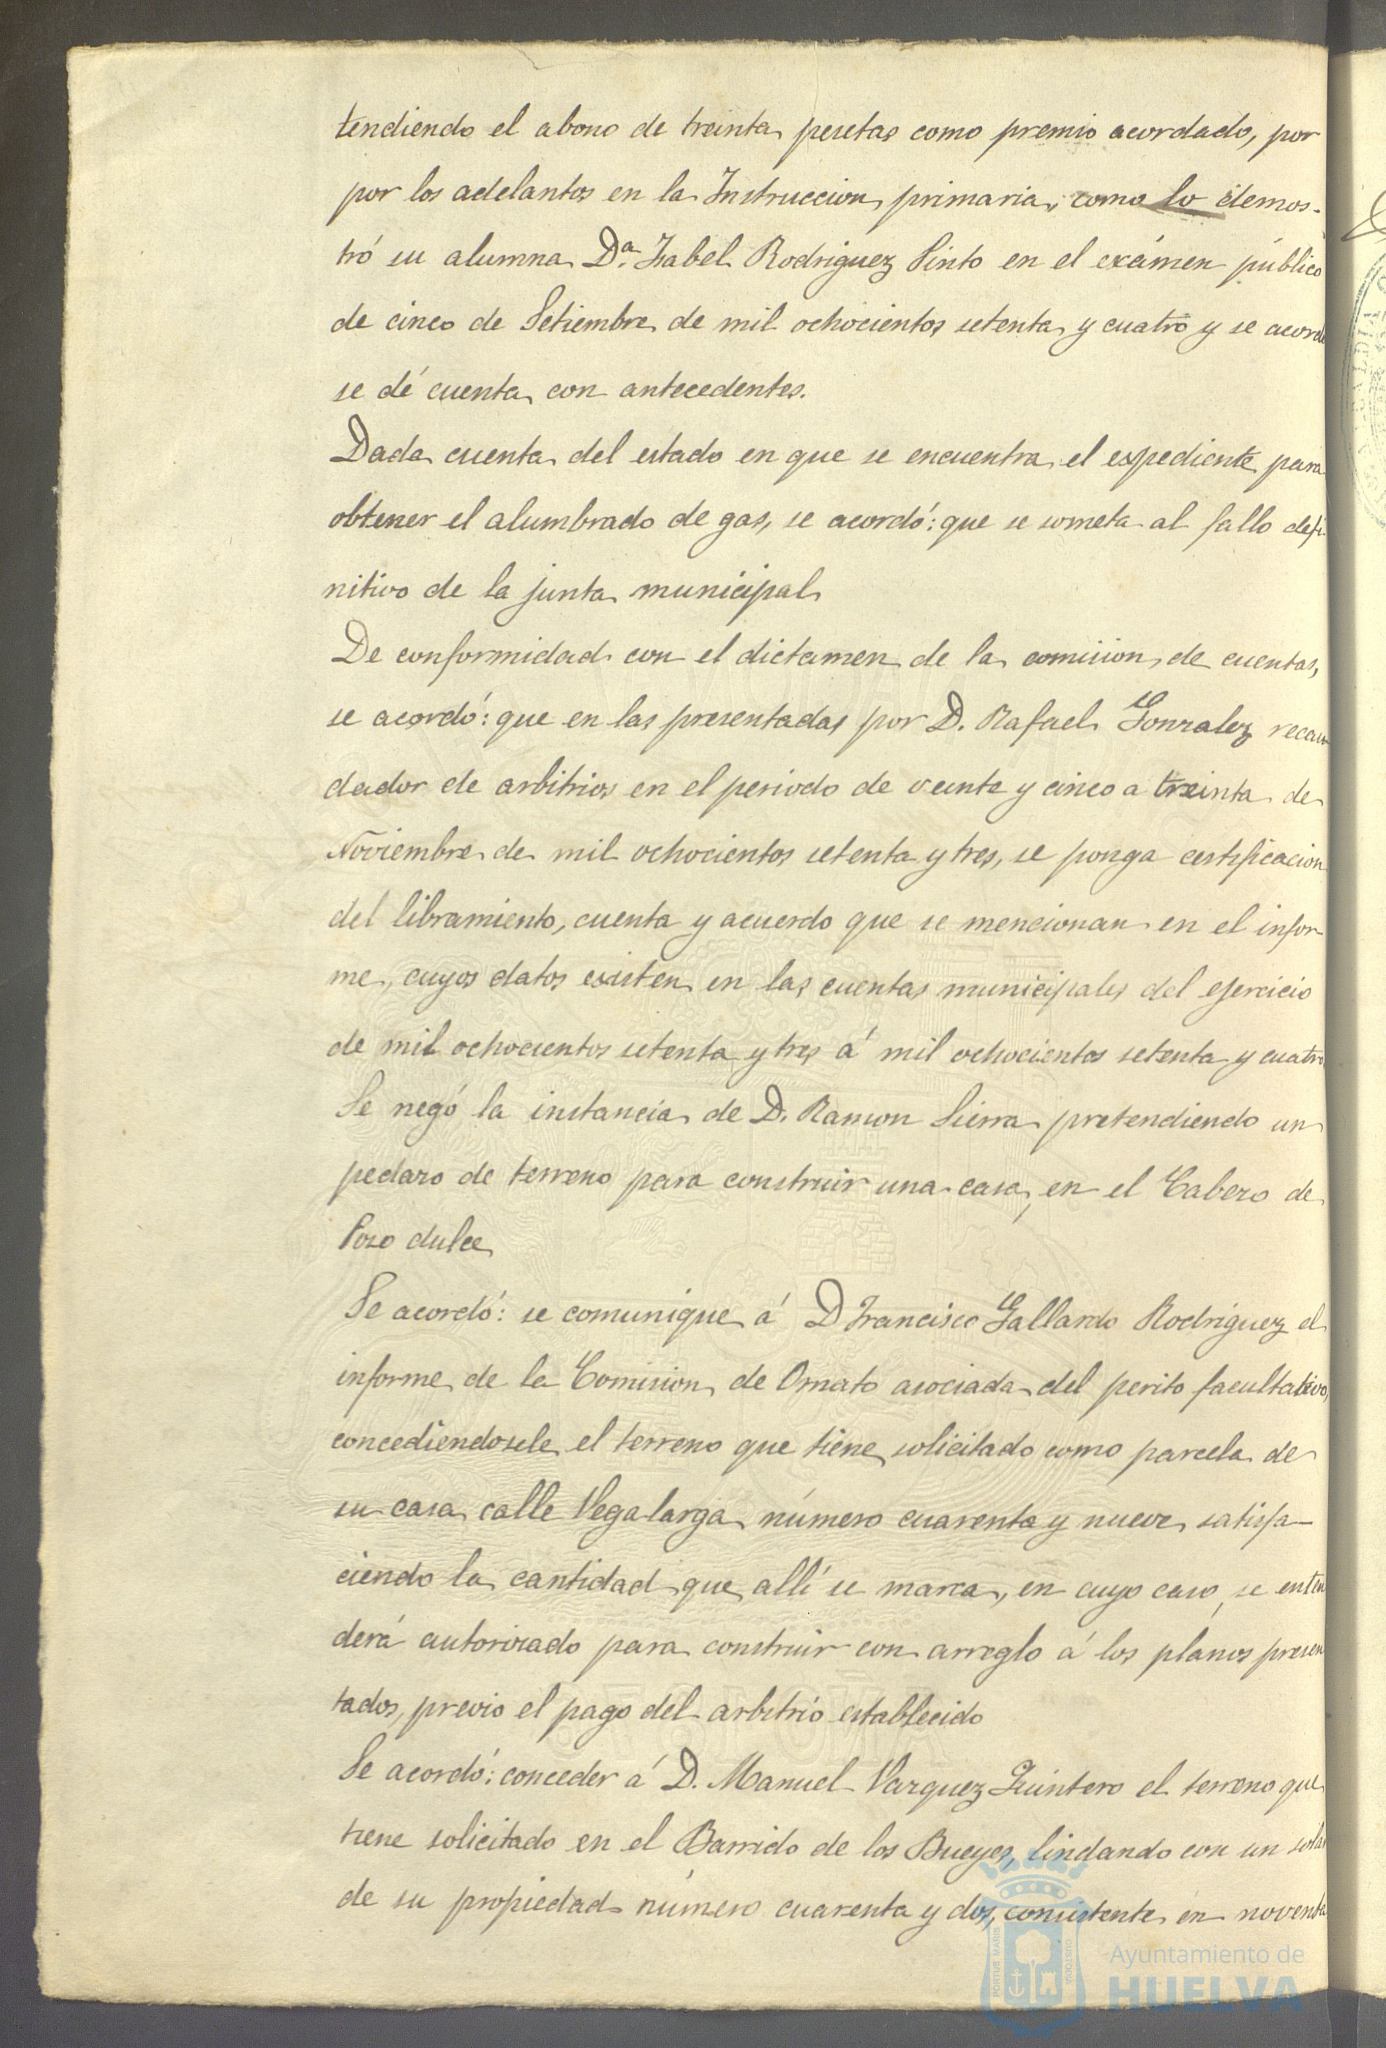 tendiendo el abono de treinta pesetas como premio acordado, por
por los adelantos en la Instruccion primaria, como lo demos-
tró su alumna D.ª Isabel Rodriguez Pinto en el exámen público
de cinco de Setiembre de mil ochocientos setenta y cuatro y se acordó
se dé cuenta con antecedentes.
Dada cuenta del estado en que se encuentra el espediente para
obtener el alumbrado de gas, se acordó: que se someta al fallo defi-
nitivo de la junta municipal
De conformidad con el dictamen de la comision de cuentas,
se acordó: que en las presentadas por D. Rafael Gonzalez recau-
dador de arbitrios en el periodo de veinte y cinco a treinta de
Noviembre de mil ochocientos setenta y tres, se ponga certificacion
del libramiento, cuenta y acuerdo que se mencionan en el infor-
me, cuyos datos existen en las cuentas municipales del ejercicio
de mil ochocientos setenta y tres á mil ochocientos setenta y cuatro
Se negó la instancia de D. Ramon Sierra pretendiendo un
pedazo de terreno para construir una casa, en el Cabezo de
Pozo dulce
Se acordó: se comunique á D Francisco Gallardo Rodriguez el
informe de la Comision de Ornato asociada del perito facultativo,
concediendosele el terreno que tiene solicitado como parcela de
su casa calle Vega-larga número cuarenta y nueve, satisfa-
ciendo la cantidad que allí se marca, en cuyo caso, se enten
derá autorizado para construir con arreglo á los planos presen
tados, previo el pago del arbitrio establecido
Se acordó: conceder á D. Manuel Vazquez Quintero el terreno que
tiene solicitado en el Barrido de los Bueyes, lindando con un solar
de su propiedad número cuarenta y dos, consistente en noventa
Ayuntamiento de
HUELVA